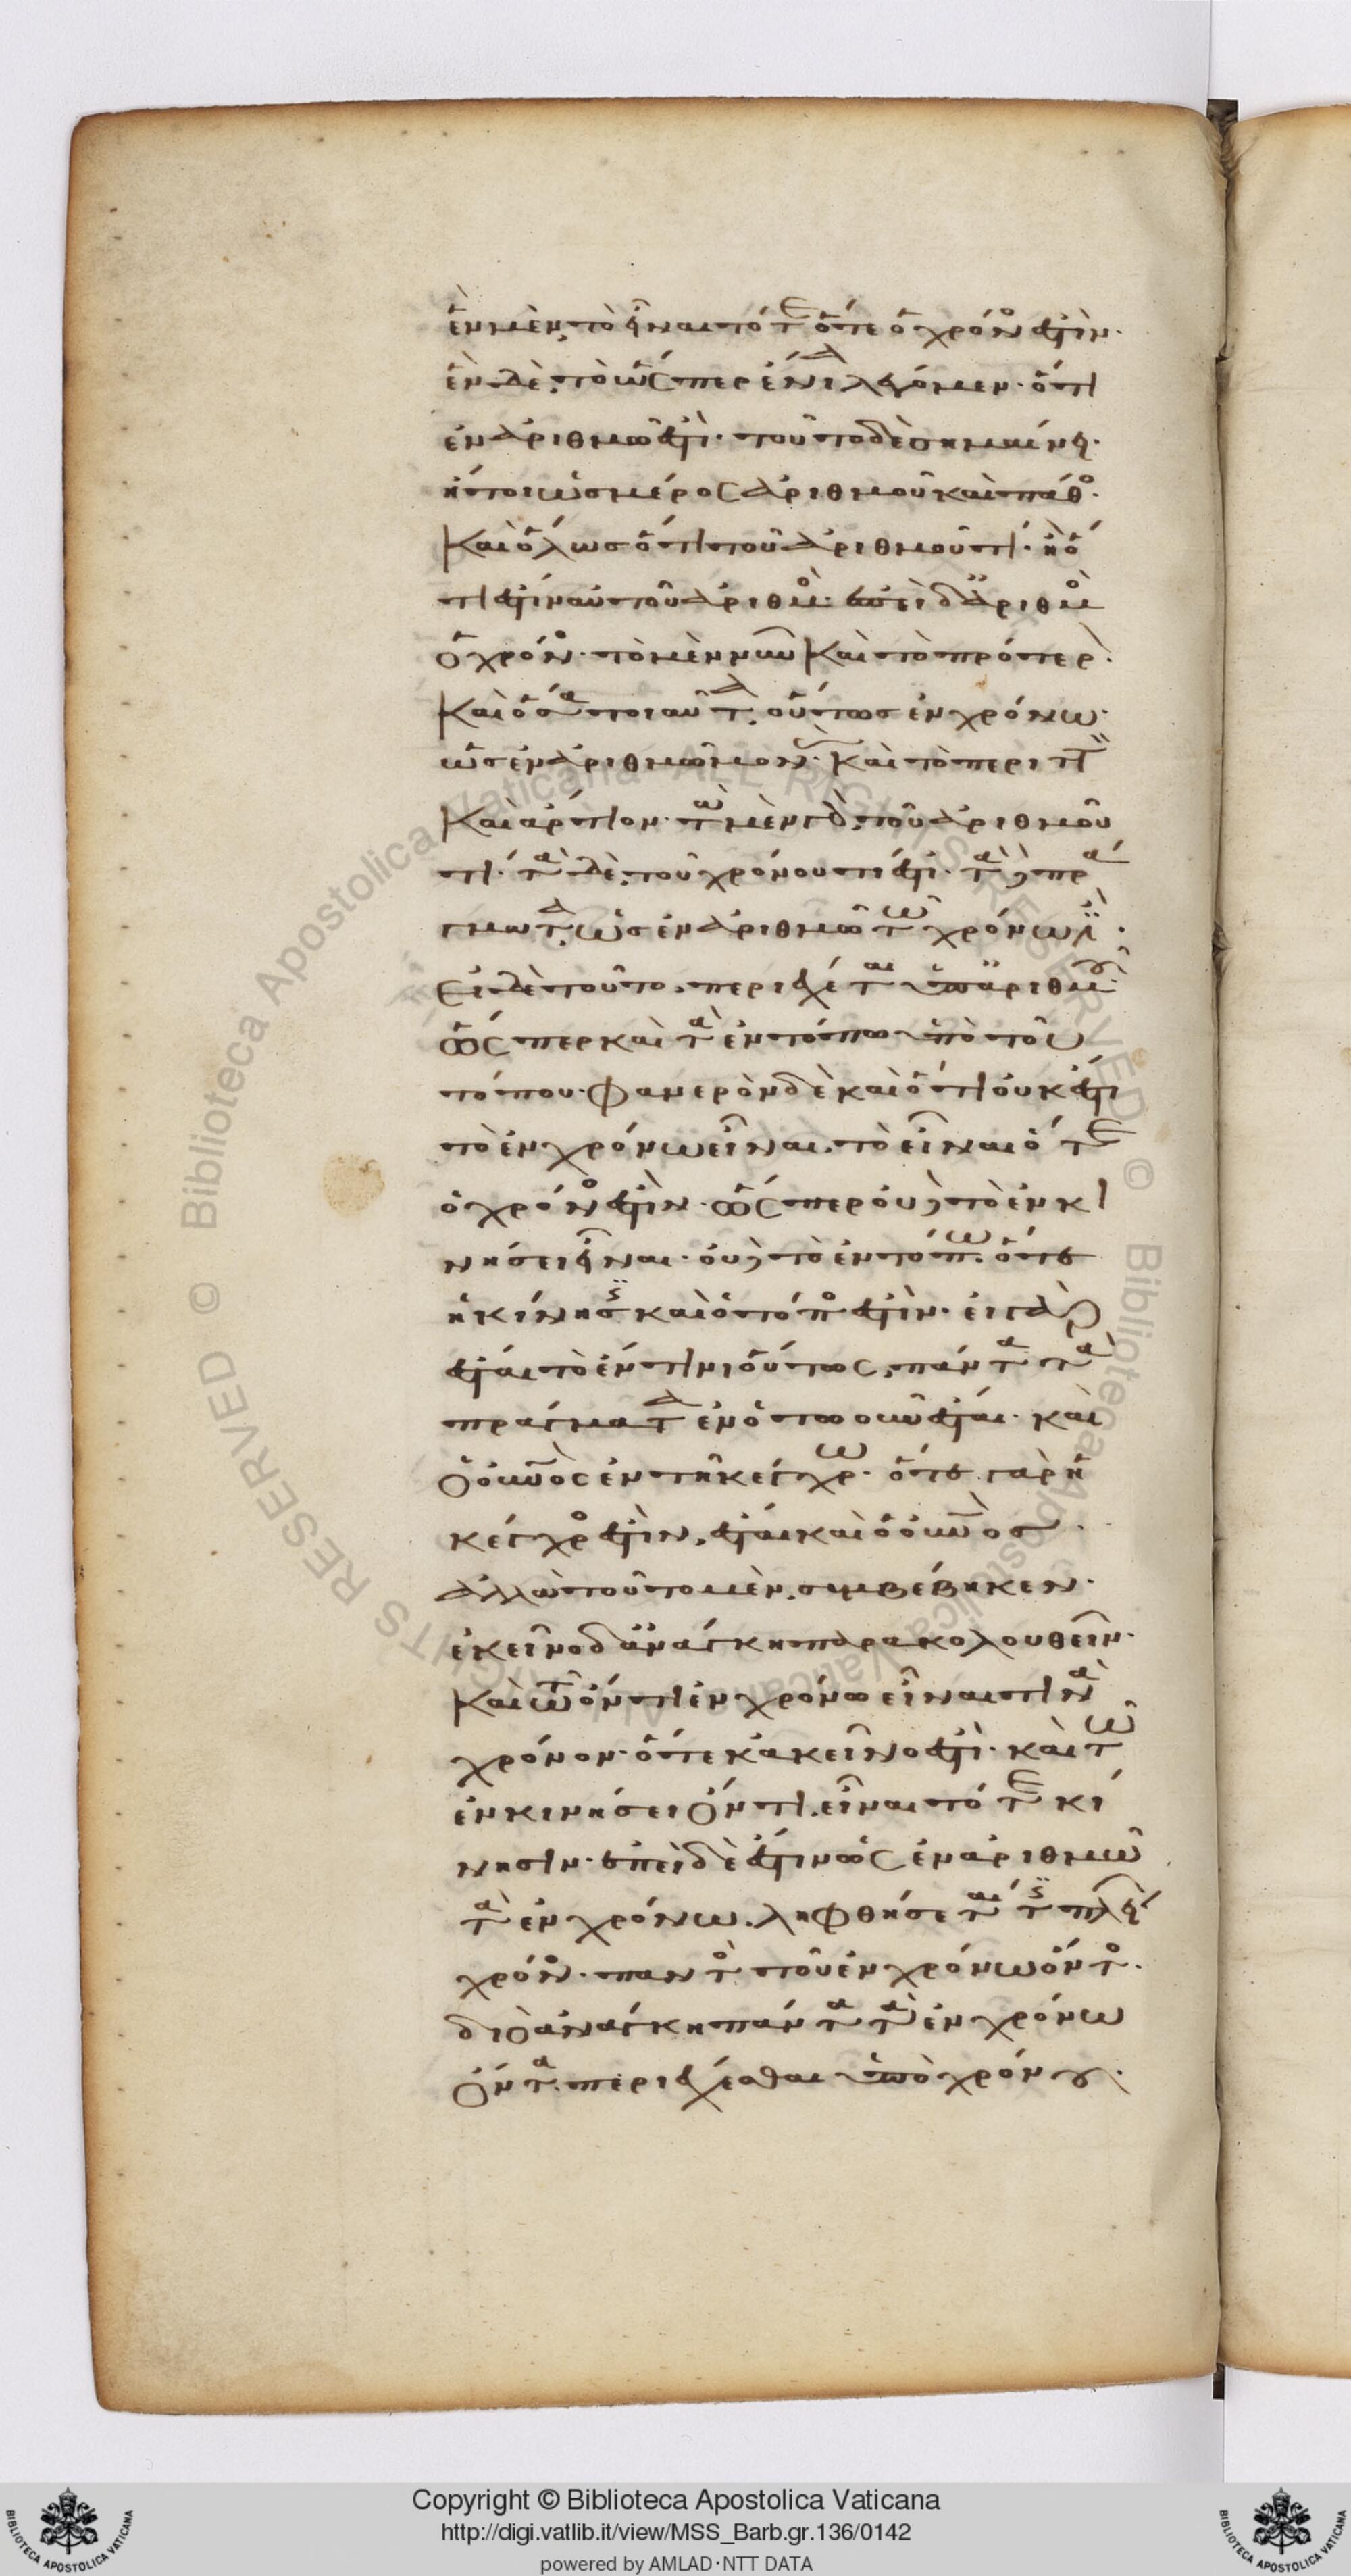 ἓν μὲν, τὸ εἶναι τότε ὅτε ὁ χρόνος ἐστὶν·
ἓν δὲ, τὸ ὥσπερ ἔνια λέγομεν· ὅτι
ἐν ἀριθμῶ ἐστὶ· τοῦτο δὲ σημαίνει·
ἤτοι ὡς μέρος ἀριθμοῦ καὶ πάθος·
καὶ ὅλως ὅτι τοῦ ἀριθμοῦ τί· ἢ ὅ
τι ἔστιν αὐτοῦ ἀριθμός· ἐπεὶ δ' ἀριθμὸς
ὁ χρόνος· τὸ μὲν νῦν καὶ τὸ πρότερον·
καὶ ὅσα τοιαῦτα, οὕτως ἐν χρόνω·
ὡς ἐν ἀριθμῶ μονὰς· καὶ τὸ περιττὸν
καὶ ἄρτιον· τὰ μὲν γὰρ, τοῦ ἀριθμοῦ
τί· τὰ δὲ, τοῦ χρόνου τί ἐστι· τὰ δὲ πρά
γματα, ὡς ἐν ἀριθμῶ τῶ χρόνω ἐστίν·
εἰ δὲ τοῦτο, περιέχεται ὑπ' ἀριθμοῦ·
ὥσπερ καὶ τὰ ἐν τόπω ὑπὸ τοῦ
τόπου· φανερὸν δὲ καὶ ὅτι οὐκ ἔστι
τὸ ἐν χρόνω εἶναι, τὸ εἶναι ὅτε
ὁ χρόνος ἐστίν· ὥσπερ οὐδὲ τὸ ἐν κι
νήσει εἶναι· οὐδὲ τὸ ἐν τόπω· ὅτε
ἡ κίνησις καὶ ὁ τόπος ἐστίν· εἰ γὰρ
ἔσται τὸ ἔν τινι οὕτως, πάντα τὰ
πράγματα ἐν ὁτωοῦν ἔσται· καὶ
ὁ οὐρανὸς ἐν τῆ κέγχρω· ὅτε γὰρ ἡ
κέγχρος ἐστὶν, ἔσται καὶ ὁ οὐρανός·
ἀλλὰ τοῦτο μὲν, συμβέβηκεν·
ἐκεῖνο δ' ἀνάγκη παρακολουθεῖν·
καὶ τῶ ὄντι ἐν χρόνω εἶναι τινὰ
χρόνον· ὅτε κἀκεῖνο ἐστὶ· καὶ τῶ
ἐν κινήσει ὄντι, εἶναι τότε κί
νησιν· ἐπεὶ δὲ ἔστιν ὡς ἐν ἀριθμῶ
τὰ ἐν χρόνω, ληφθήσεταί τις πλείων
χρόνος· παντὸς τοῦ ἐν χρόνω ὄντος·
διὸ ἀνάγκη πάντα τὰ ἐν χρόνω
ὄντα περιέχεσθαι ὑπὸ χρόνου·
Copyright © Biblioteca Apostolica Vaticana
http://digi.vatlib.it/view/MSS_Barb.gr.136/0142
powered by AMLAD·NTT DATA